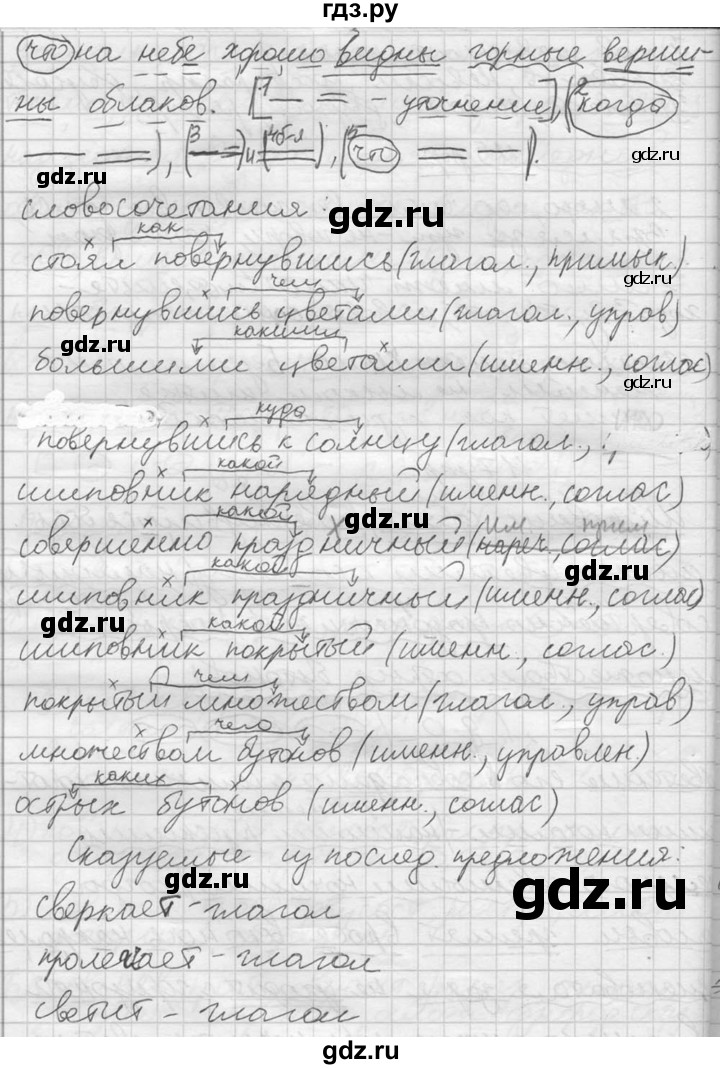 гдз.ру
что на небе хорошо видны горные верши-
ны облаков. [1 — = - уточнение], (2 когда
— =), (3 — =) и (4б-я =), (5 что = — ).
gdz.ru
gdz.ru
словосочетания:
gdz.ru
как
стоял повернувшись (глагол., примык.)
gdz.ru
чем
повернувшись цветами (глагол., управ)
gdz.ru
какими
большими цветами (именн., соглас)
gdz.ru
куда
повернувшись к солнцу (глагол.,
какой
шиповник нарядный (именн., соглас)
gdz.ru
какой
им прим
совершенно праздничный (нареч., соглас)
gdz.ru
какой
шиповник праздничный (именн., соглас)
gdz.ru
какой
шиповник покрытый (именн., соглас.)
чем
покрытый множеством (глагол., управ)
чего
множеством бутонов (именн., управлен.)
каких
острых бутонов (именн., соглас)
Сказуемые из послед. предложения:
gdz.ru
gdz.ru
сверкает - глагол
пролетает - глагол
gdz.ru
светит - глагол
gdz.ru